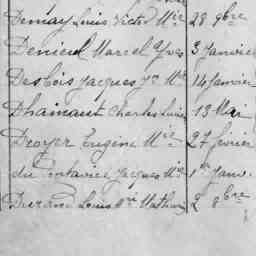 Demay Louis Victor Mie 28 9bre
Denieul Marcel Yves 3 Janvier
Desbois Jacques Jn Mie 14 Janvier
Dhainaut Charles Louis 13 Mai
Droyer Eugène Mie 27 février
du Pontavice Jacques Mie 1er Janv.
Durand Louis Mathurin 2 8bre